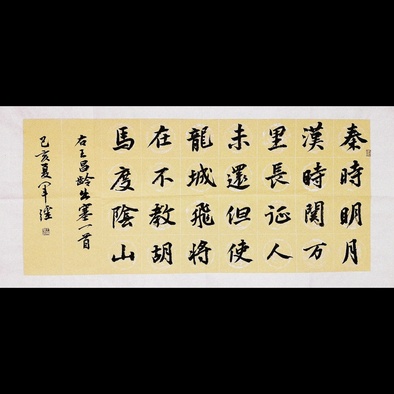 秦時明月
漢時関万
里長证人
未還但使
龍城飛将
在不教胡
馬度陰山
右王昌龄出塞一首
己亥夏军